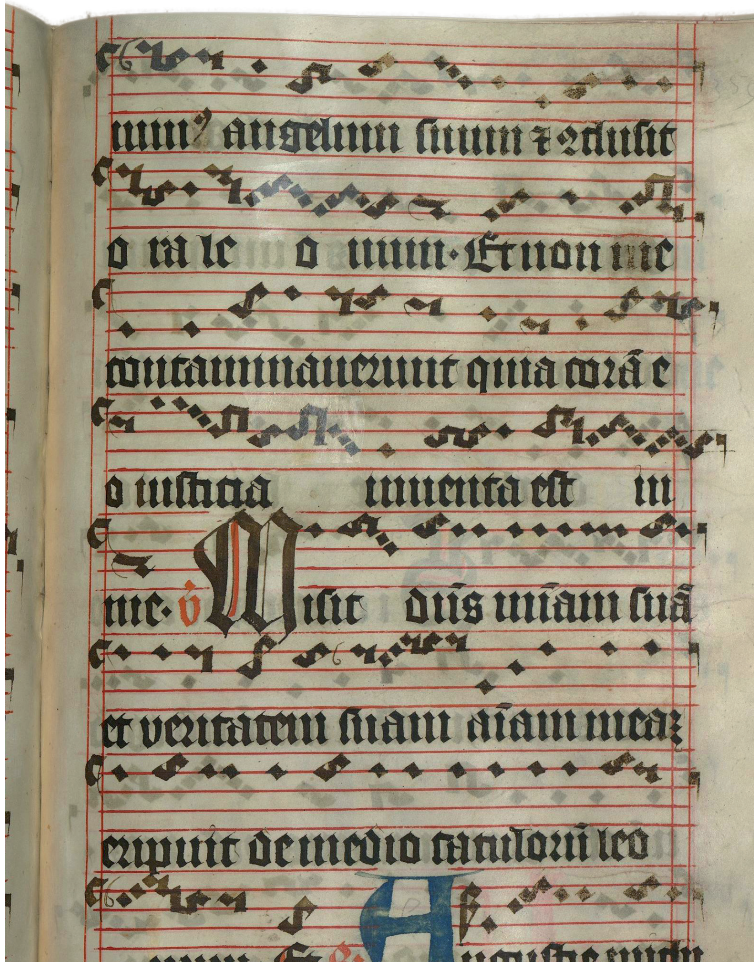 mimꝰ angelum suum ⁊ ꝯclusit
o ra le o num · Et non me
contaminauerunt quia corā e
o iusticia inuenta est in
me · v̂ Misit dn̄s mīam suā
et veritatem suam aīam meaꝫ
eripuit de medio catulorū leo
num Et Angustie michi